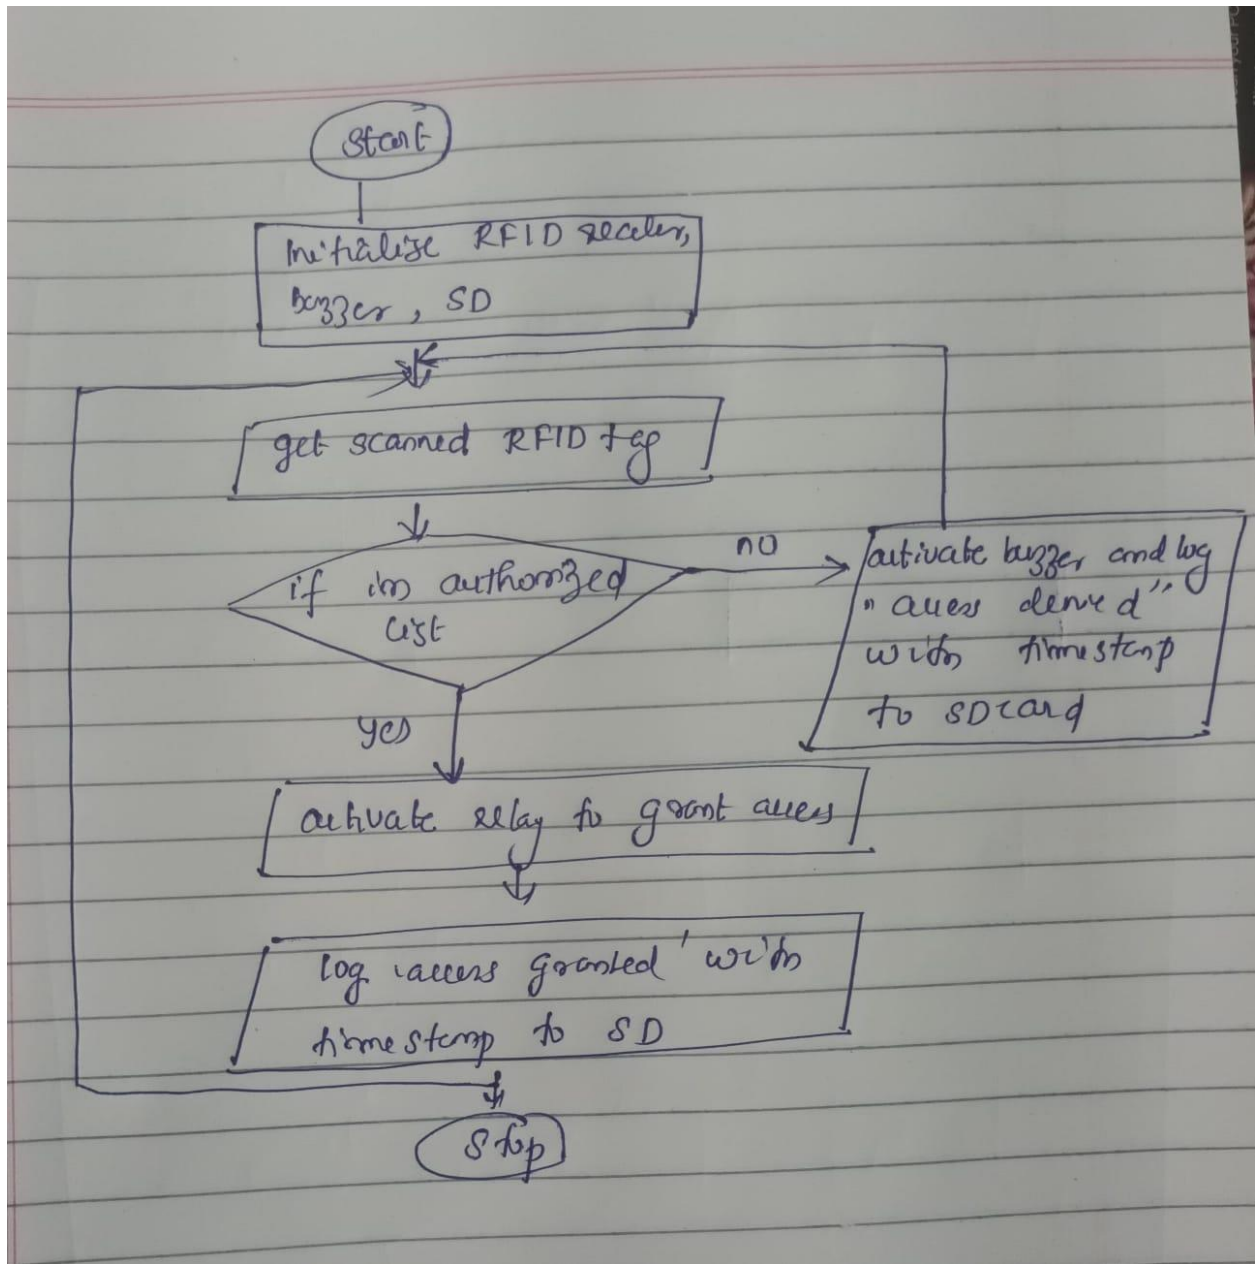 Start
Initialize RFID reader,
buzzer, SD
get scanned RFID tag
if in authorized
list
no
activate buzzer and log
"access denied"
with timestamp
to SD card
yes
activate relay to grant access
log 'access granted' with
timestamp to SD
Stop